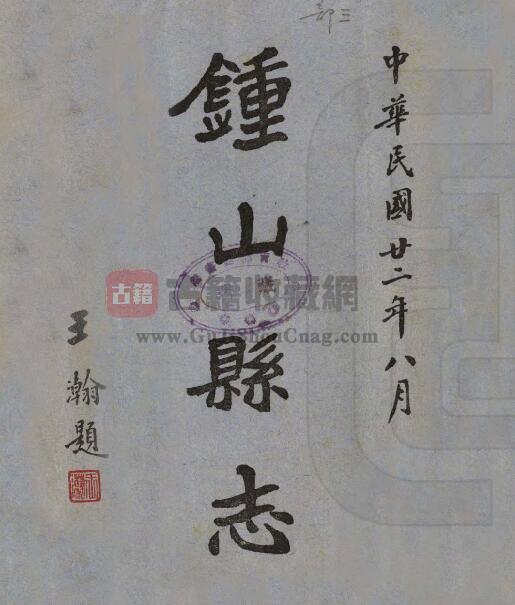 三部
中華民國廿二年八月
鍾山縣志
王瀚題
古籍
古籍收藏網
www.GuJiShouCnag.com